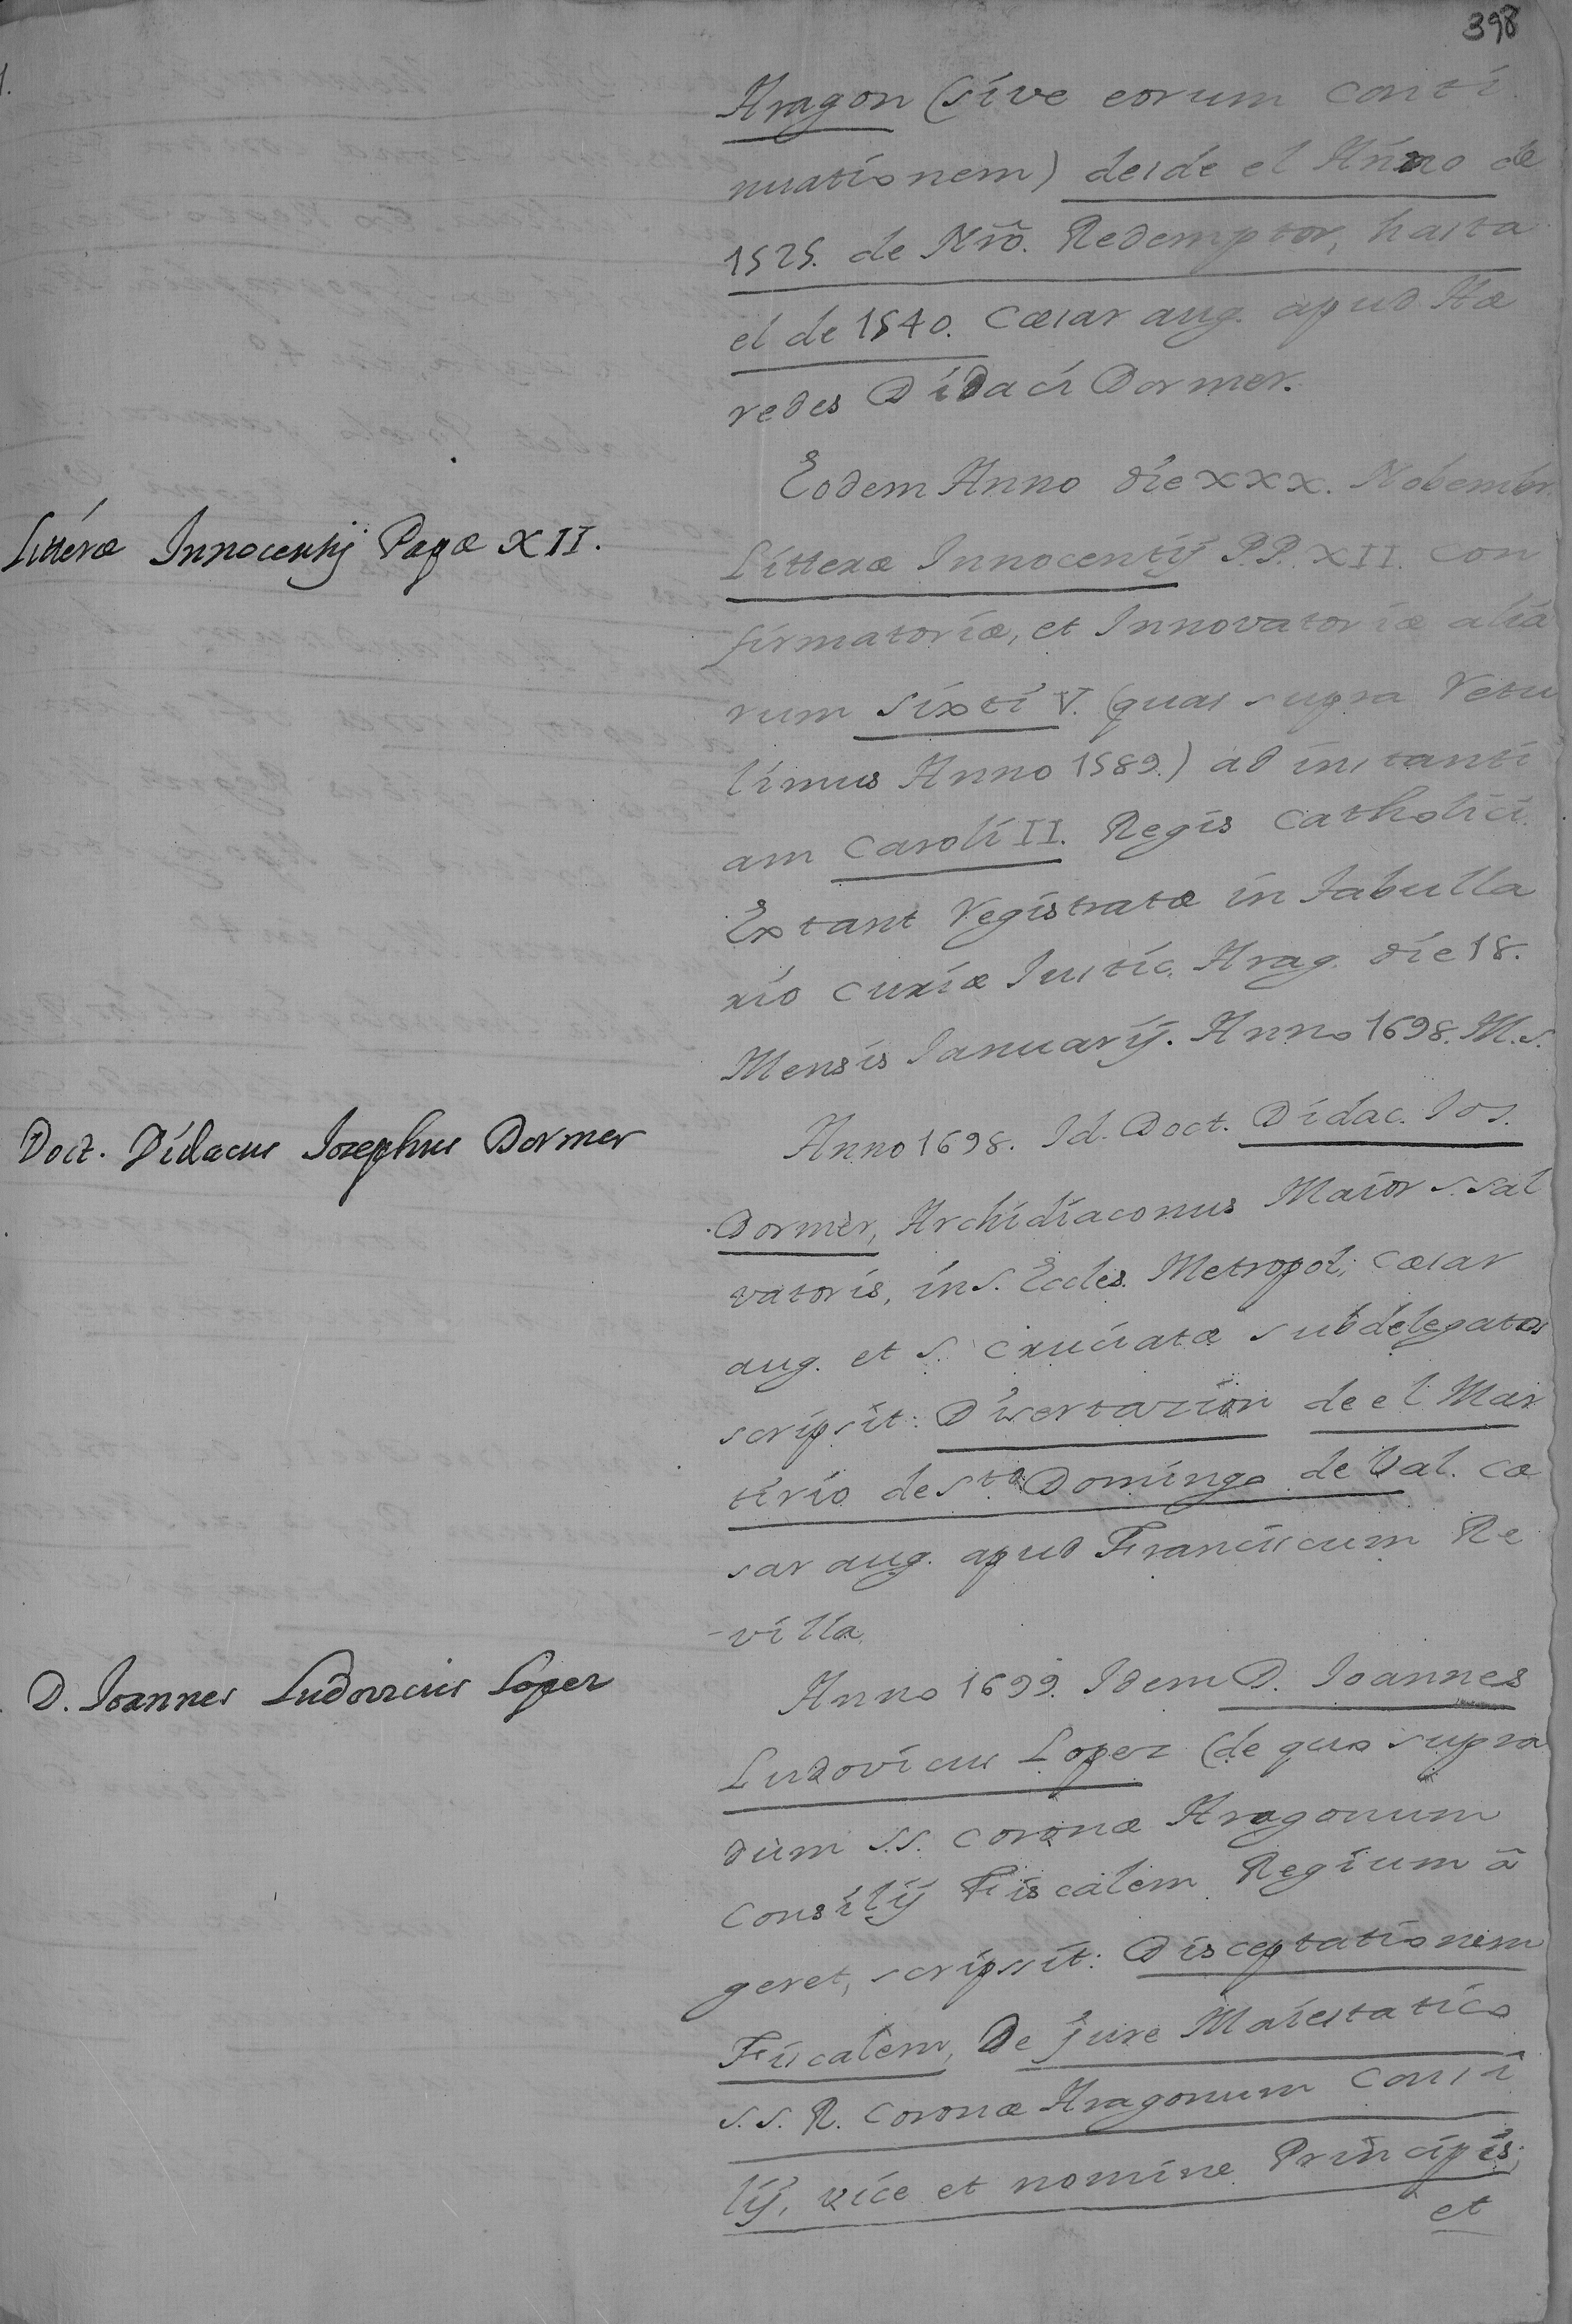 398
Aragon (sive eorum conti
nuationem) desde el Anno de
1525. de Nrõ. Redemptor, hasta
el de 1540. Cæsar aug. apud Hæ
redes Didaci Dormer.
Eodem Anno die XXX. Nobembr.
Litteræ Innocentij Papæ XII.
Litteræ Innocentij P.P. XII. con
firmatoriæ, et Innovatoriæ alia
rum Sixti V. (quas supra Retu
limus Anno 1589.) ad instanti
am Caroli II. Regis Catholici.
Extant Registratæ in Tabulla
rio Curiæ Iustic. Arag. die 18.
Mensis Ianuarij. Anno 1698. M.s.
Doct. Didacus Iosephus Dormer
Anno 1698. Id. Doct. Didac. Ios.
Dormer, Archidiaconus Maior S. Sal
vatoris, in S. Eccles. Metropol; Cæsar
aug. et S. Cruciatæ subdelegatos
scripsit: Disertazion de el Mar
tirio de Sto Domingo de Val. Cæ
sar aug. apud Franciscum Re
villa.
D. Ioannes Ludovicus Lopez
Anno 1699. Idem D. Ioannes
Ludovicus Lopez (de quo supra
dum S.S. Coronæ Aragonum
Consilij Fiscalem Regium ã
geret, scripsit: Disceptationem
Fiscalem, De jure Maiestatico
S.S. R. Coronæ Aragonum Consi
lij, vice et nomine Principis;
et